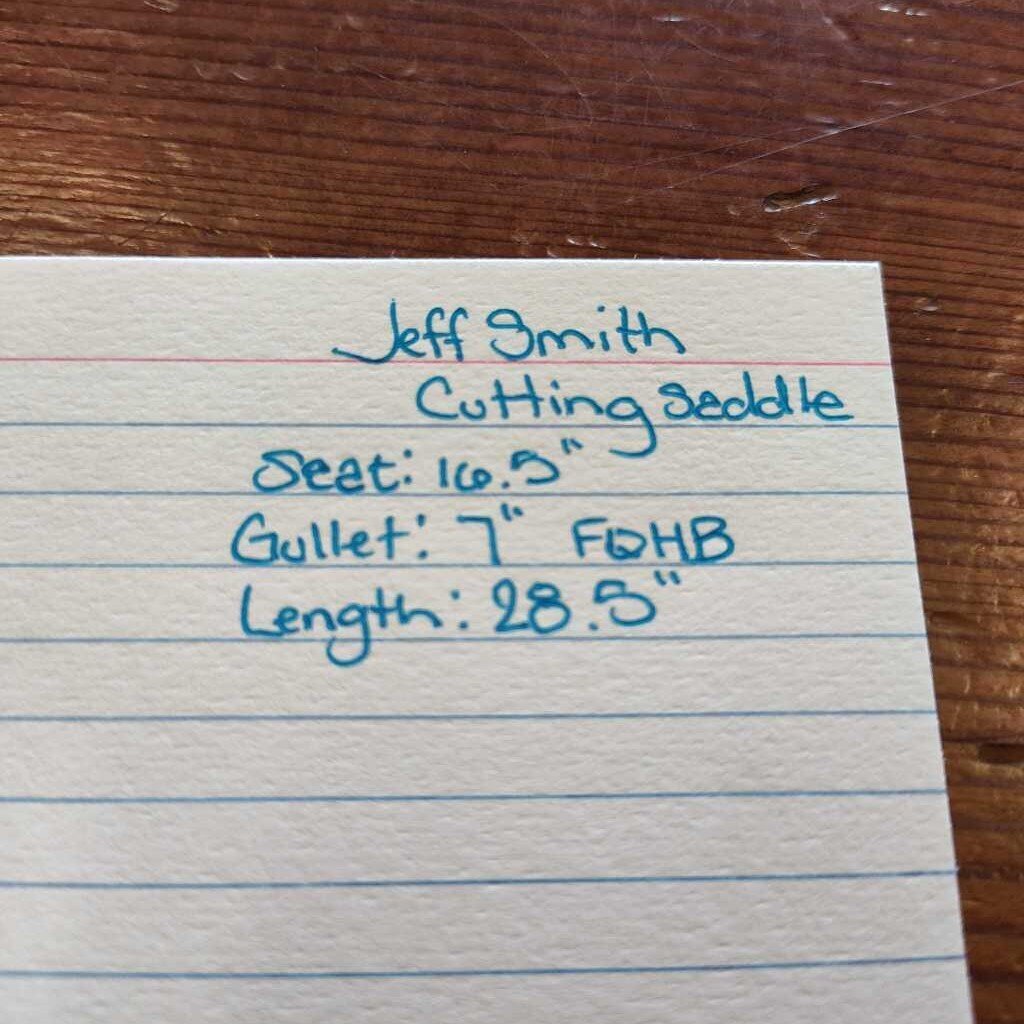 Jeff Smith
Cutting Saddle
Seat: 16.5"
Gullet: 7" FQHB
Length: 28.5"